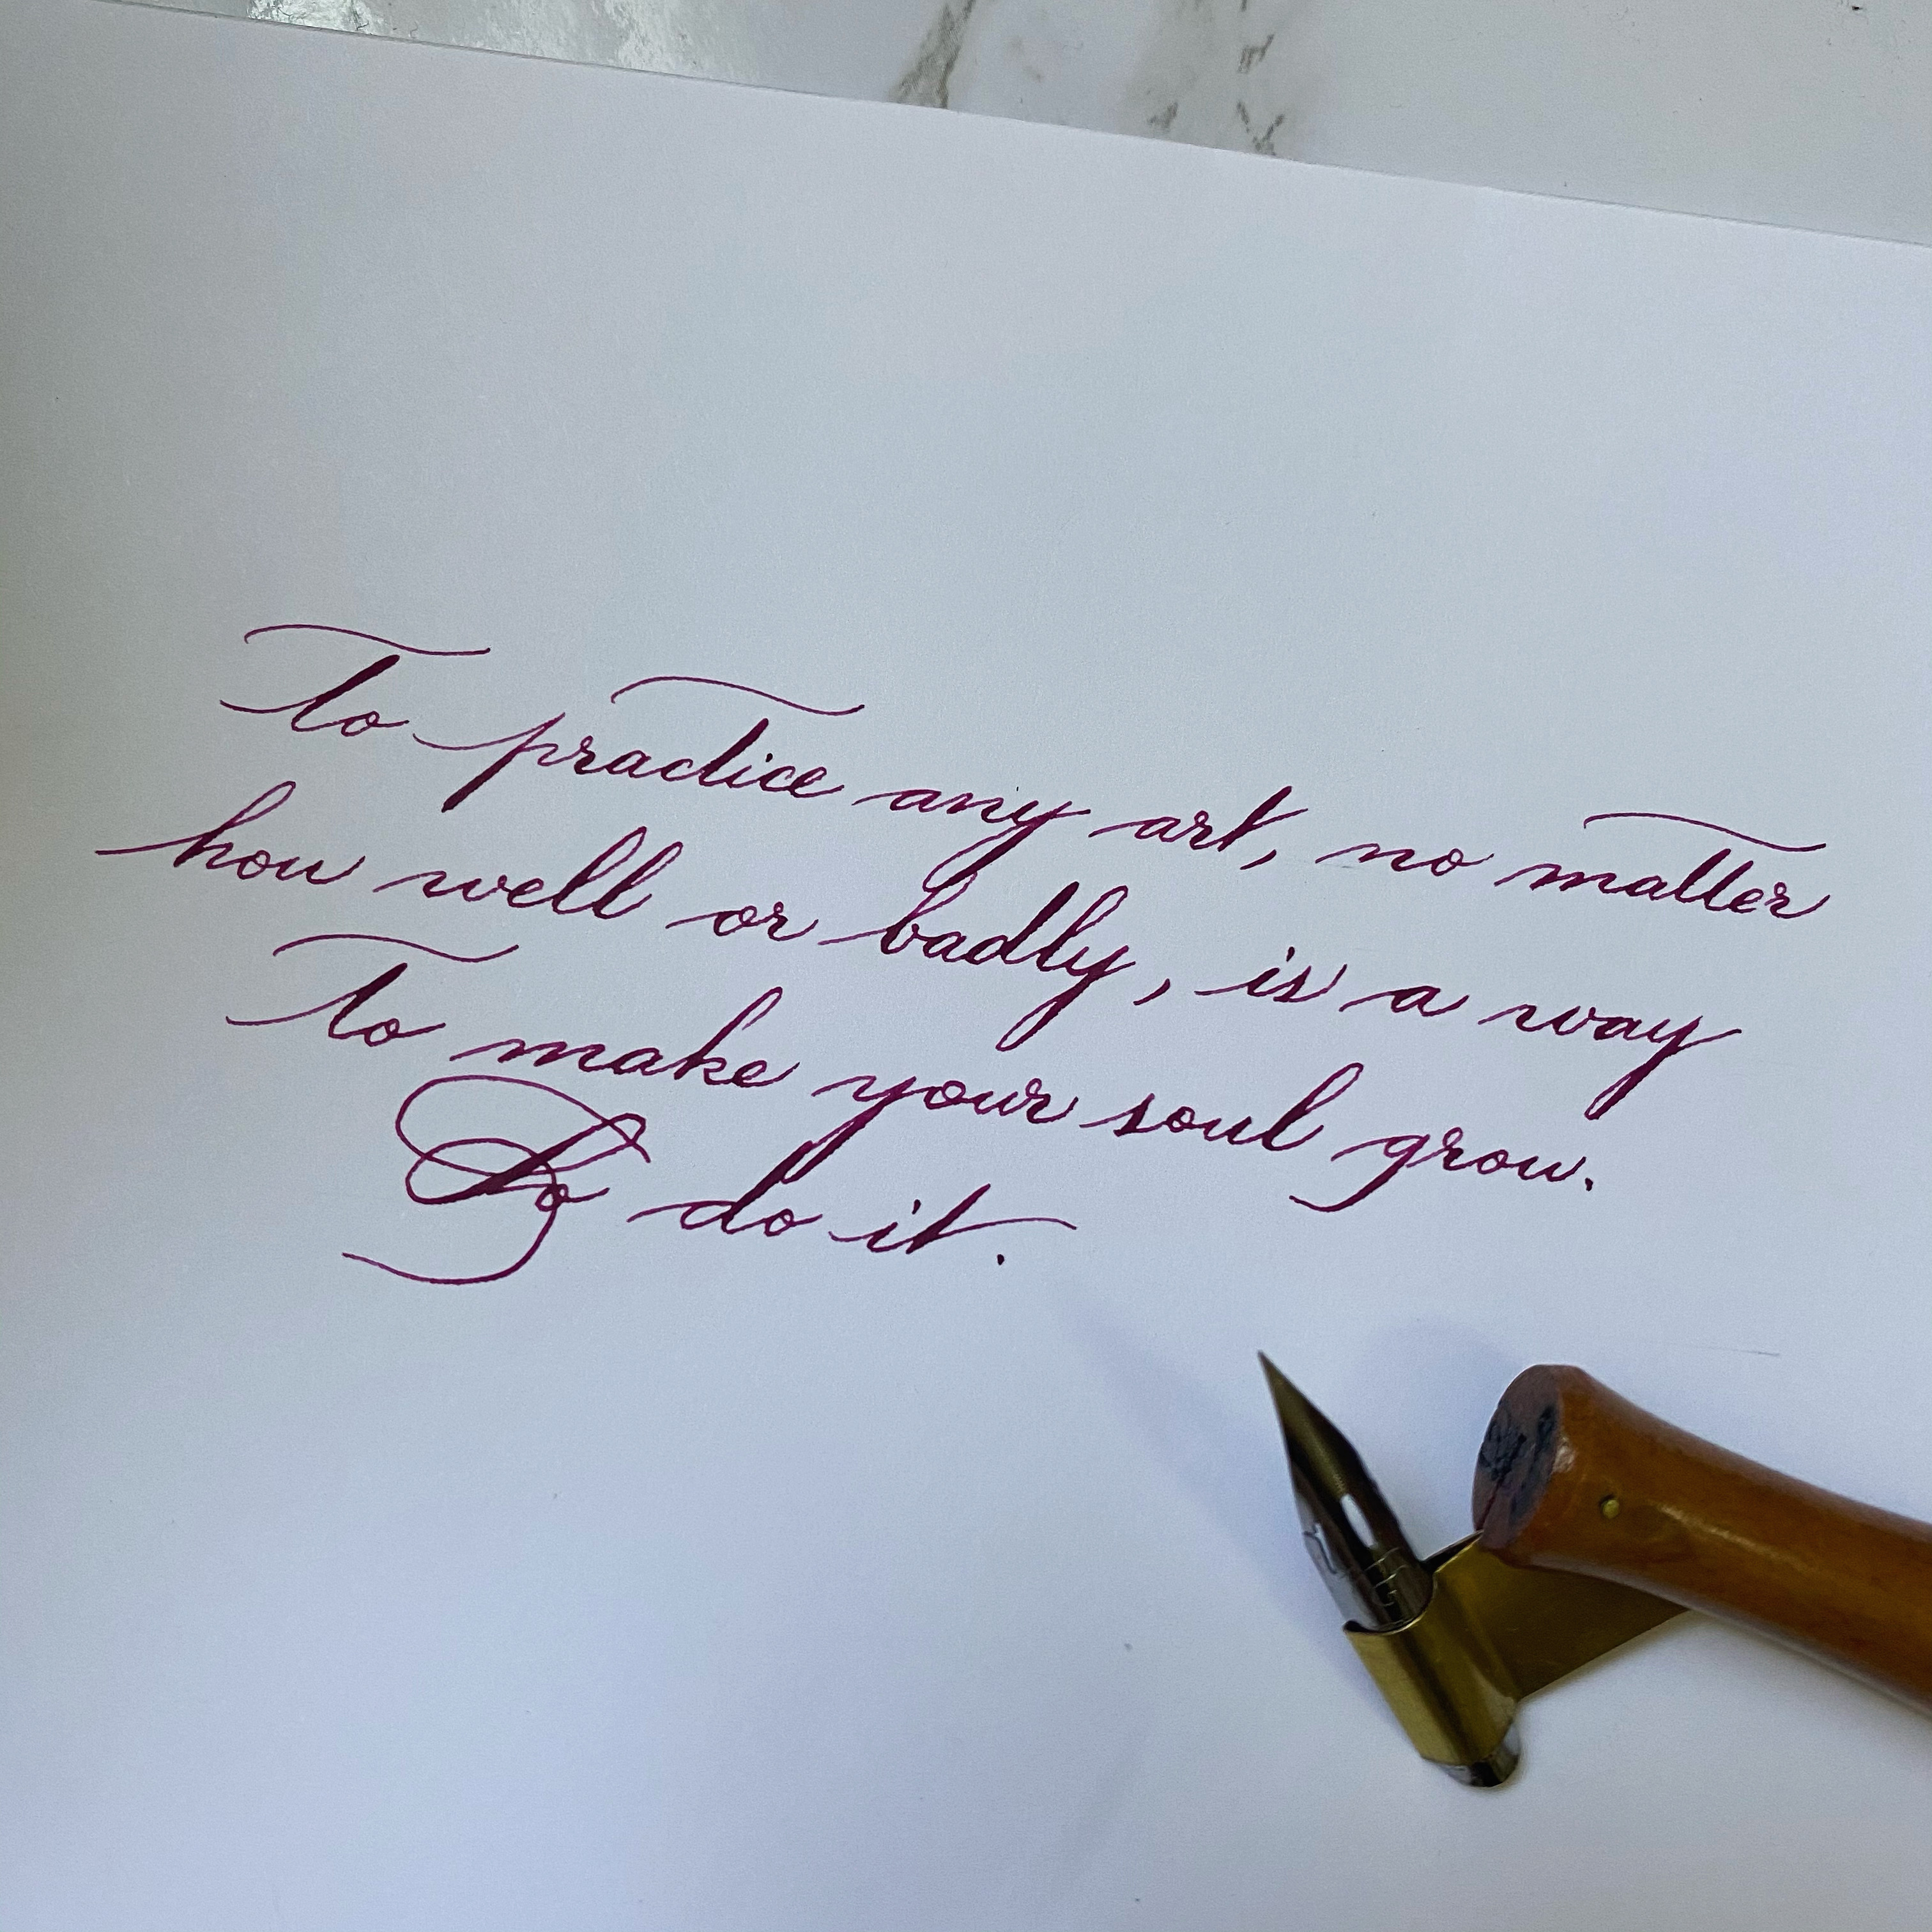 To practice any art, no matter
how well or badly, is a way
to make your soul grow.
So do it.